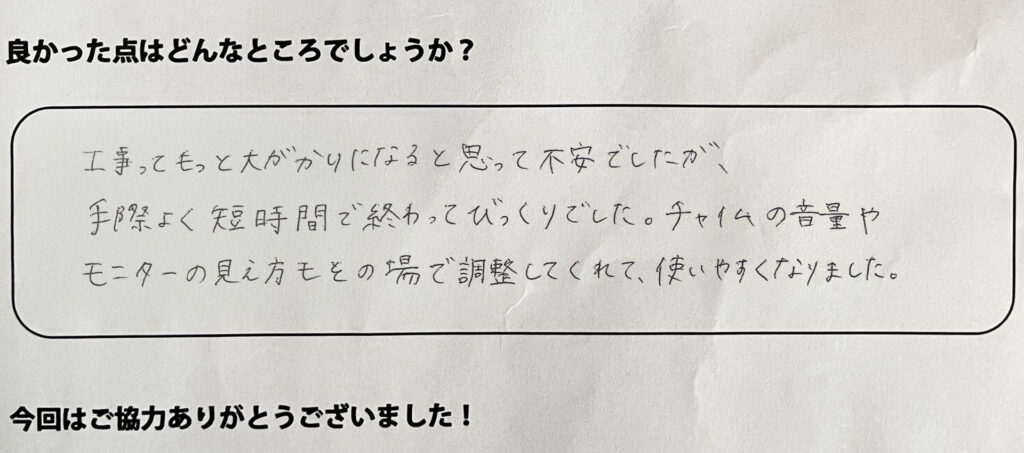 良かった点はどんなところでしょうか？
工事ってもっと大がかりになると思って不安でしたが、
手際よく短時間で終わってびっくりでした。チャイムの音量や
モニターの見え方もその場で調整してくれて、使いやすくなりました。
今回はご協力ありがとうございました！